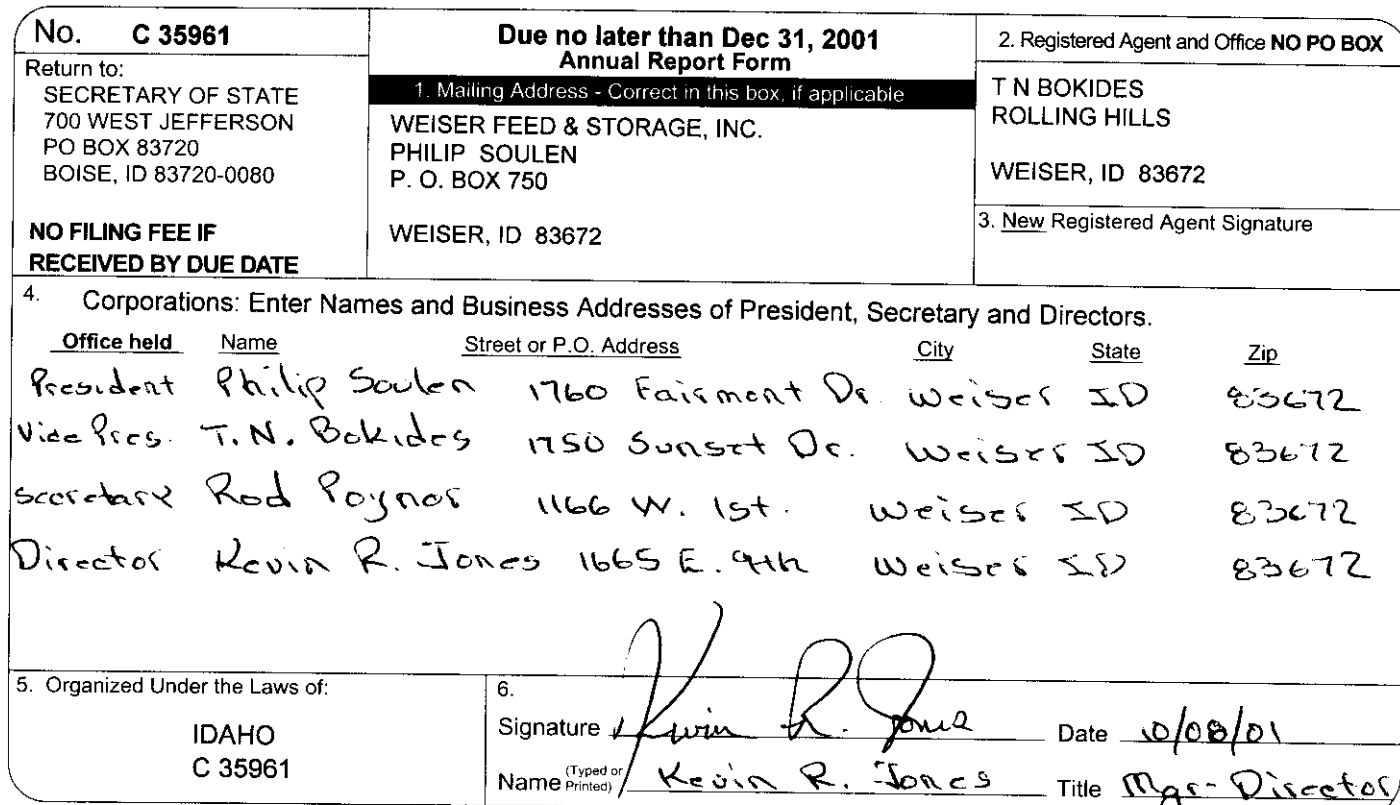 No. C 35961
Return to:
SECRETARY OF STATE
700 WEST JEFFERSON
PO BOX 83720
BOISE, ID 83720-0080
NO FILING FEE IF
RECEIVED BY DUE DATE
Due no later than Dec 31, 2001
Annual Report Form
1. Mailing Address - Correct in this box, if applicable
WEISER FEED & STORAGE, INC.
PHILIP SOULEN
P. O. BOX 750
WEISER, ID 83672
2. Registered Agent and Office NO PO BOX
T N BOKIDES
ROLLING HILLS
WEISER, ID 83672
3. New Registered Agent Signature
4. Corporations: Enter Names and Business Addresses of President, Secretary and Directors.
Office held Name Street or P.O. Address City State Zip
President Philip Soulen 1760 Fairmont Dr. Weiser ID 83672
Vice Pres. T.N. Bokides 1750 Sunset Dr. Weiser ID 83672
Secretary Rod Poynor 1166 W. 1st. Weiser ID 83672
Director Kevin R. Jones 1665 E. 9th Weiser ID 83672
5. Organized Under the Laws of:
IDAHO
C 35961
6.
Signature Kevin R. Jones Date 10/08/01
Name (Typed or Printed) Kevin R. Jones Title Mgr-Director